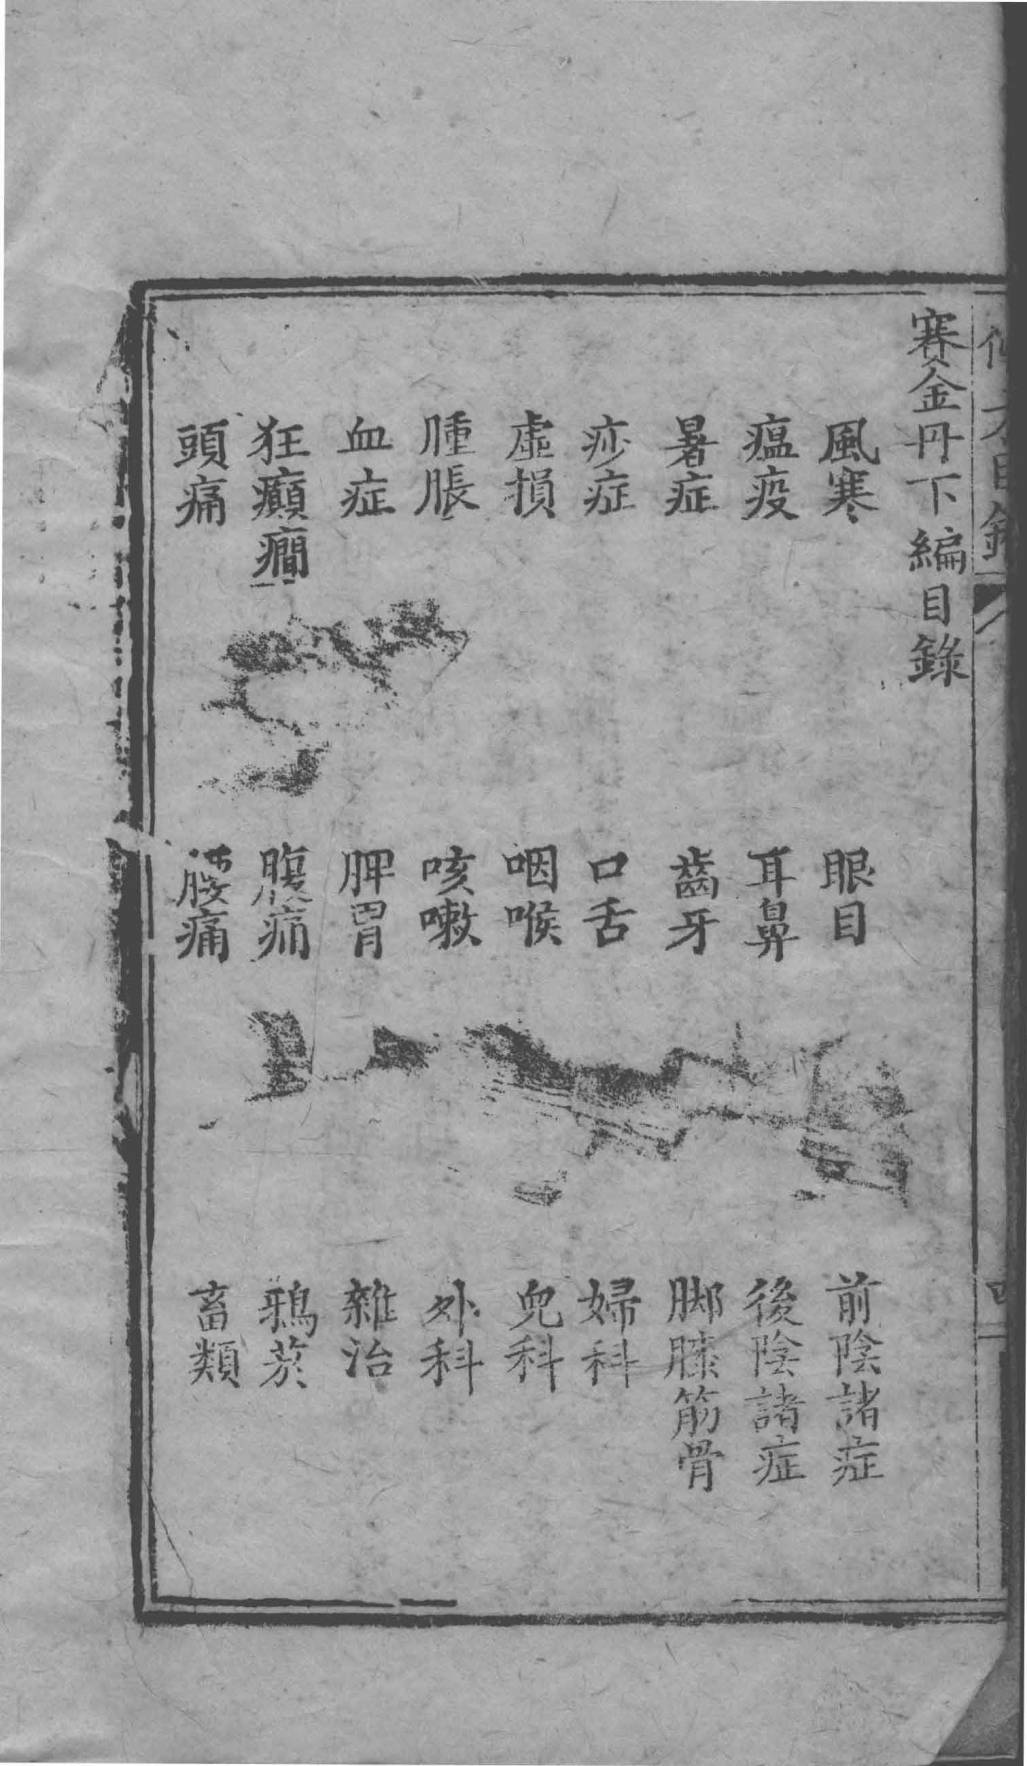 賽金丹下編目錄
風寒 眼目 前陰諸症
瘟疫 耳鼻 後陰諸症
暑症 齒牙 脚膝筋骨
痧症 口舌 婦科
虛損 咽喉 兒科
腫脹 咳嗽 外科
血症 脾胃 雜治
狂癲癎 腹痛 鴉菸
頭痛 腰痛 畜類